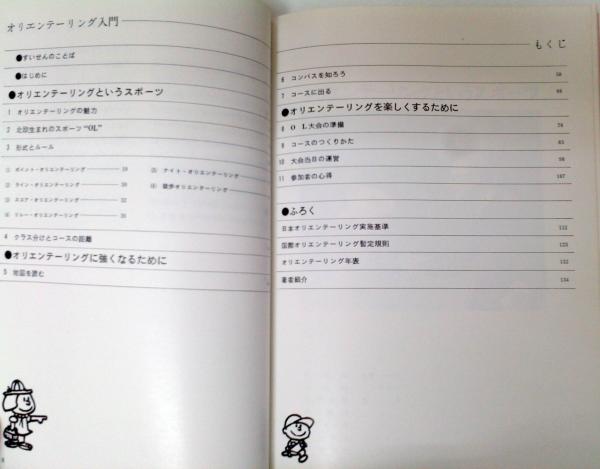 オリエンテーリング入門
●すいせんのことば
●はじめに
●オリエンテーリングというスポーツ
1 オリエンテーリングの魅力
2 北欧生まれのスポーツ"OL"
3 形式とルール
(1) ポイント・オリエンテーリング
(2) ライン・オリエンテーリング
(3) スコア・オリエンテーリング
(4) リレー・オリエンテーリング
(5) ナイト・オリエンテーリング
(6) 徒歩オリエンテーリング
4 クラス分けとコースの距離
●オリエンテーリングに強くなるために
5 地図を読む
もくじ
6 コンパスを知ろう
7 コースに出る
●オリエンテーリングを楽しくするために
8 OL大会の準備
9 コースのつくりかた
10 大会当日の運営
11 参加者の心得 107
●ふろく
日本オリエンテーリング実施基準
国際オリエンテーリング暫定規則
オリエンテーリング年表 132
著者紹介 134